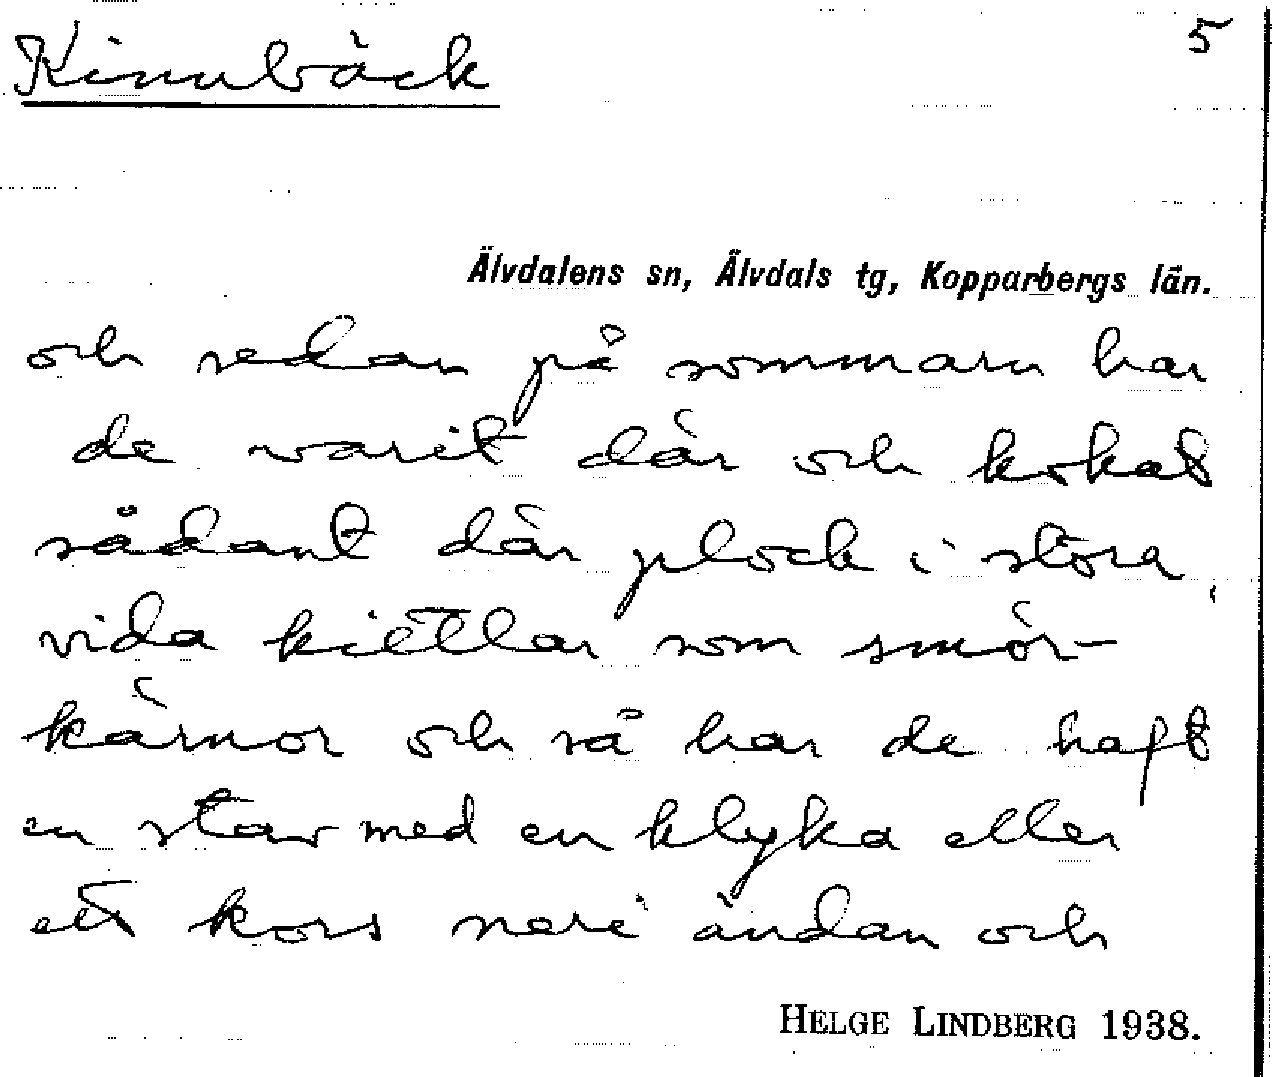 Kinnbäck
5
Älvdalens sn, Älvdals tg, Kopparbergs län.
och sedan på sommarn har
de varit där och kokat
sådant där plock i stora
vida kittlar som smör-
kärnor och så har de haft
en stav med en klyka eller
ett kors nere i ändan och
HELGE LINDBERG 1938.